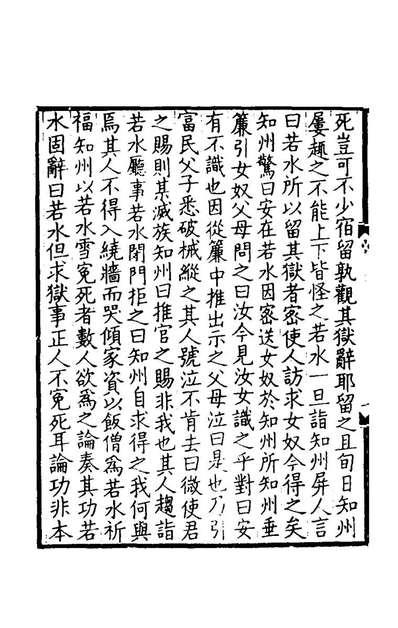 死豈可不少宿留孰觀其獄辭耶留之且旬日知州
屢趣之不能上下皆怪之若水一旦詣知州屏人言
曰若水所以留其獄者密使人訪求女奴今得之矣
知州驚曰安在若水因密送女奴於知州所知州垂
簾引女奴父母問之曰汝今見汝女識之乎對曰安
有不識也因從簾中推出示之父母泣曰是也乃引
富民父子悉破械縱之其人號泣不肯去曰微使君
之賜則某滅族知州曰推官之賜非我也其人趨詣
若水廳事若水閉門拒之曰知州自求得之我何與
焉其人不得入繞牆而哭傾家資以飯僧為若水祈
福知州以若水雪冤死者數人欲為之論奏其功若
水固辭曰若水但求獄事正人不冤死耳論功非本